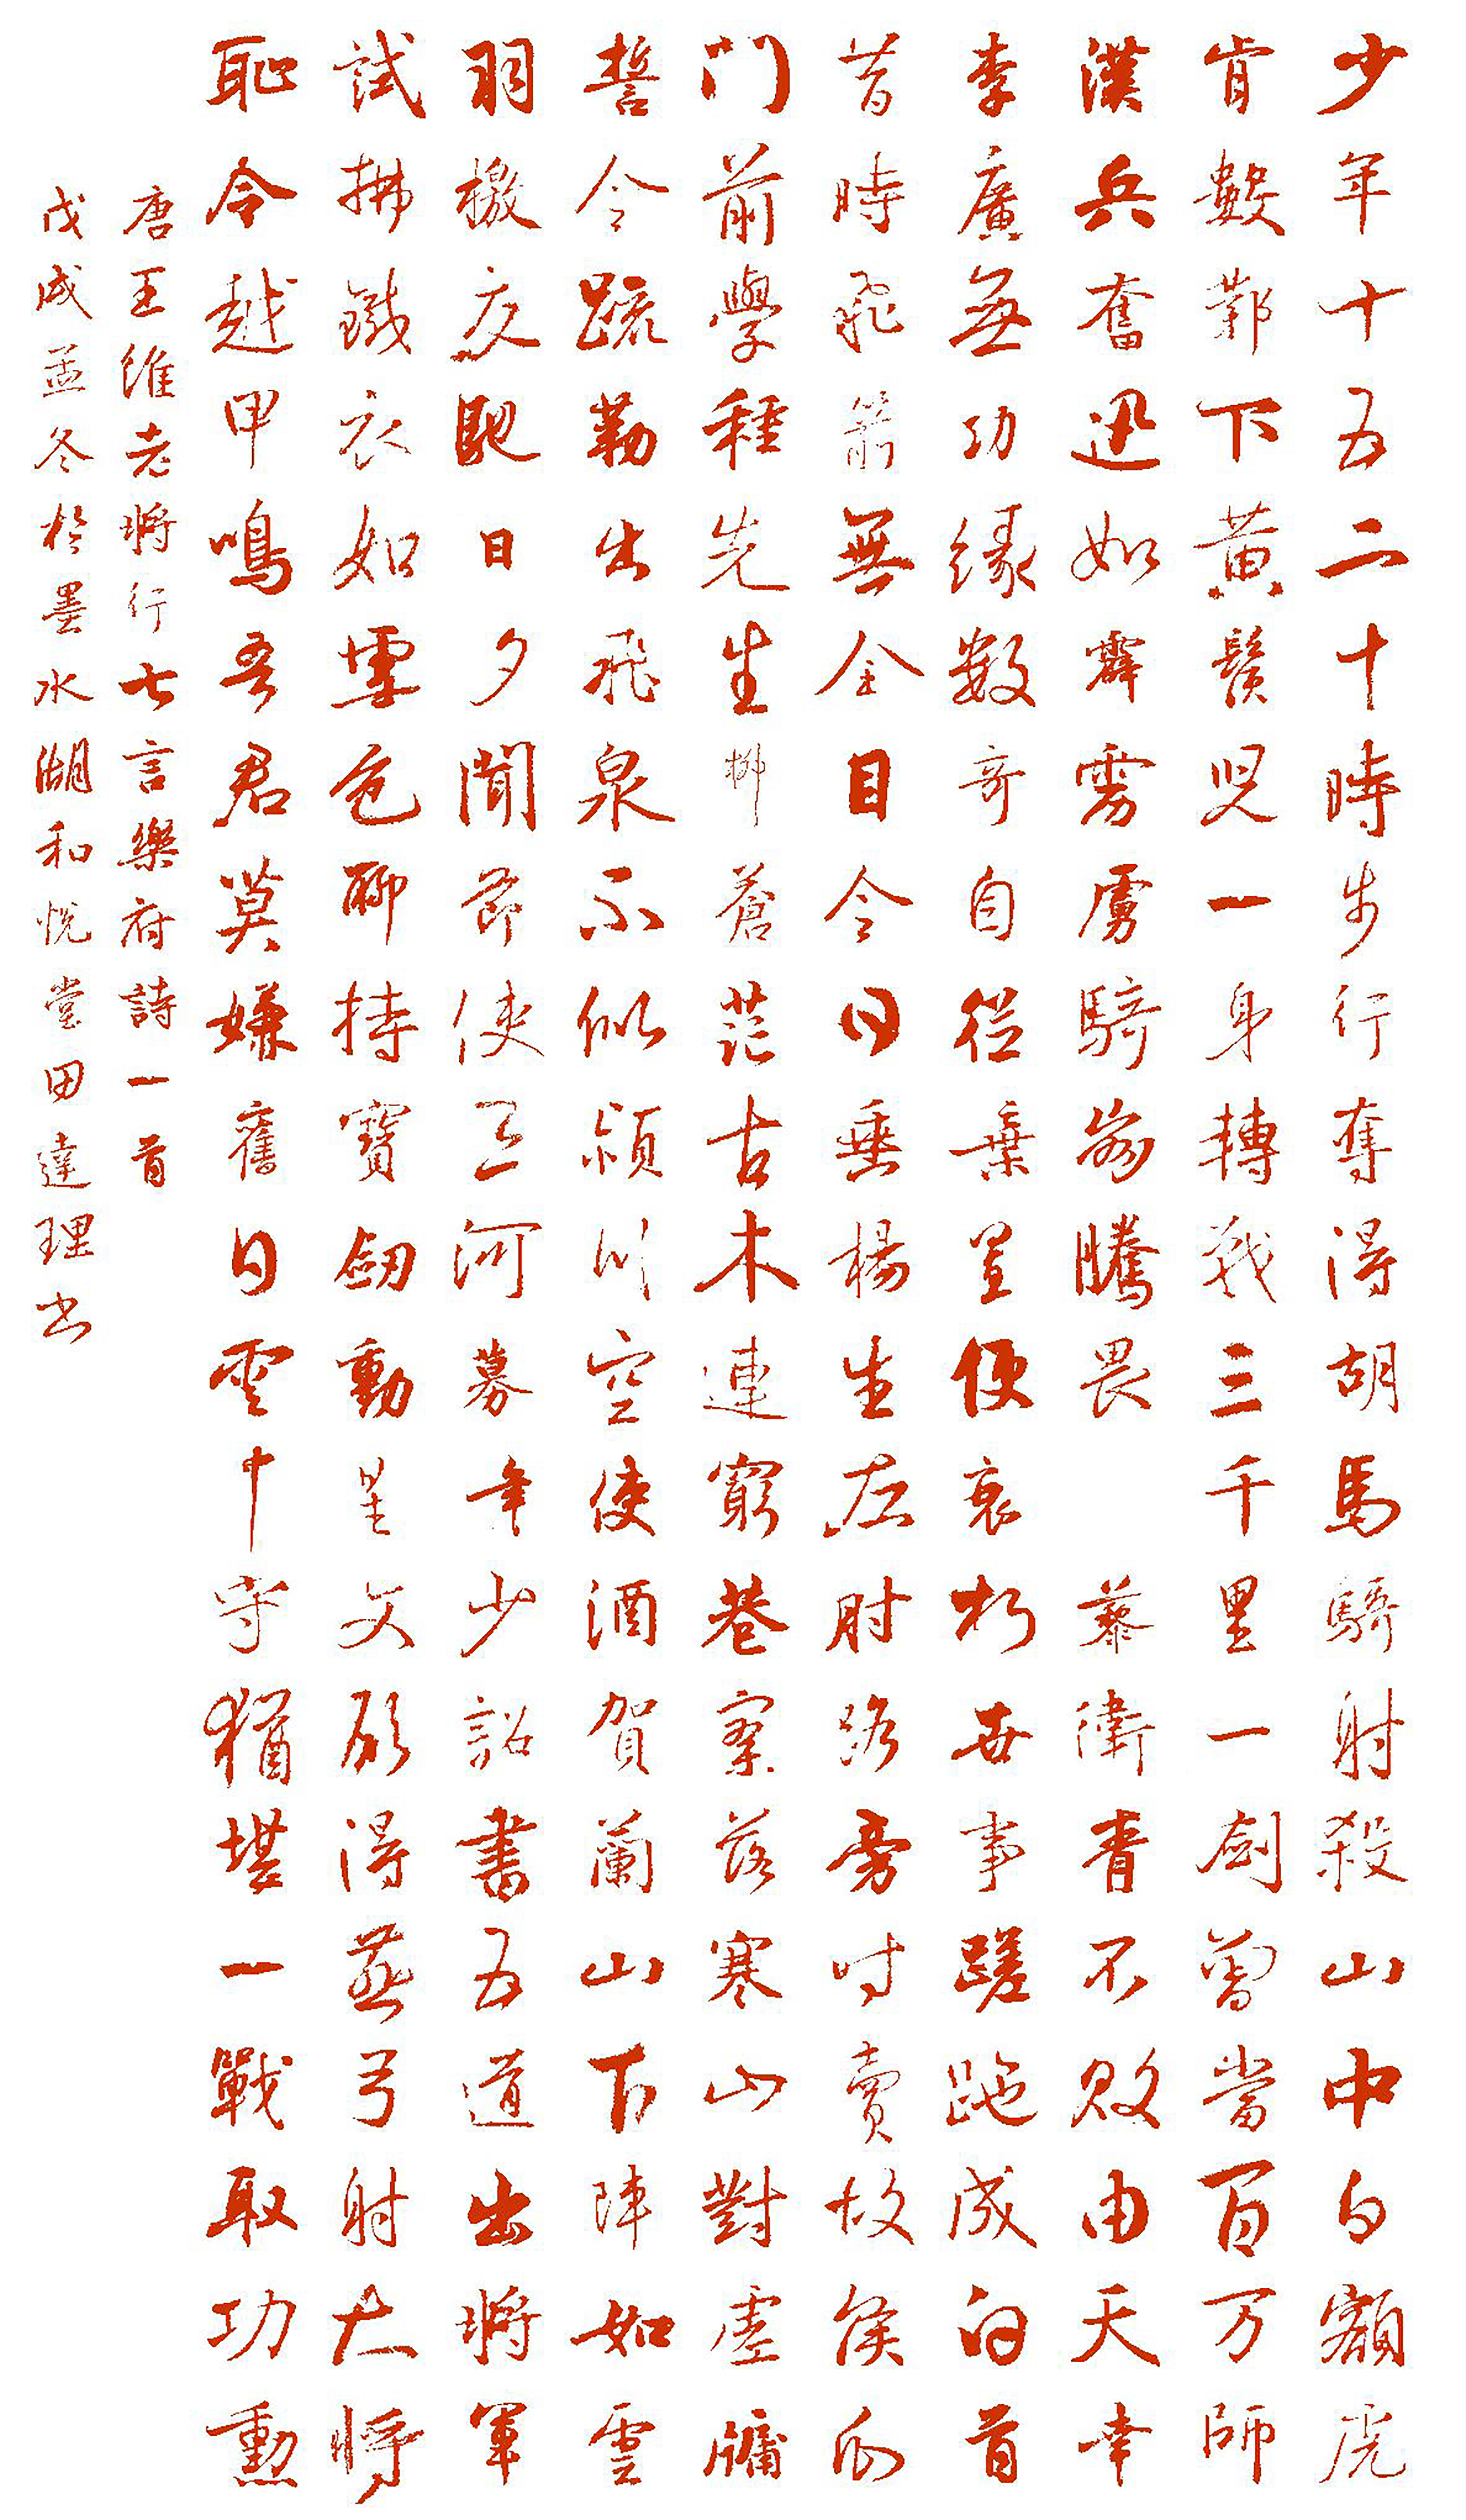 少年十五二十時步行奪得胡馬騎射殺山中白額虎
肯數鄴下黃鬚兒一身轉戰三千里一劍曾當百万師
漢兵奮迅如霹雳虜騎崩騰畏藜衛青不敗由天幸
李廣無功緣數奇自從棄置便衰朽世事蹉跎成白首
昔時飛箭無全目今日垂楊生左肘路旁時賣故侯瓜
門前學種先生柳蒼茫古木連窮巷寥落寒山對虛牖
誓令疏勒出飛泉不似潁川空使酒賀蘭山下陣如雲
羽檄交馳日夕聞節使三河募年少詔書五道出將軍
試拂鐵衣如雪色聊持寶劍動星文願得燕弓射大將
恥令越甲鳴吾君莫嫌舊日雲中守猶堪一戰取功勳
唐王維老將行七言樂府詩一首
戊戌孟冬於墨水湖和悅堂田達理書